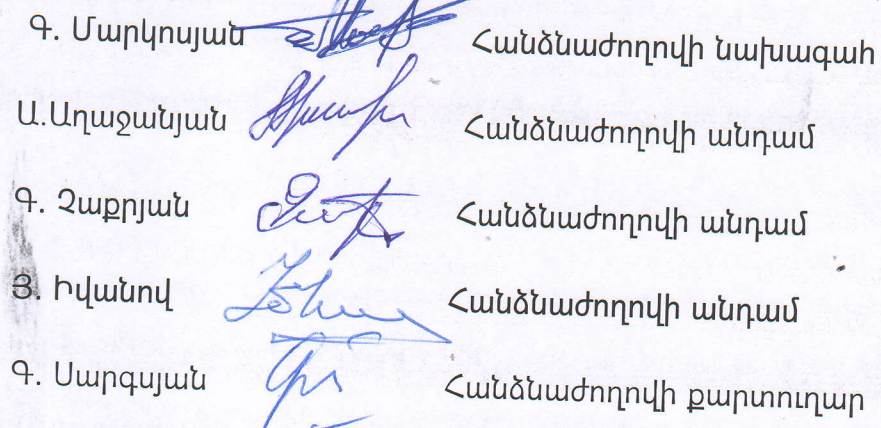 Գ. Մարկոսյան Հանձնաժողովի նախագահ
Ա.Աղաջանյան Հանձնաժողովի անդամ
Գ. Չաքրյան Հանձնաժողովի անդամ
Յ. Իվանով Հանձնաժողովի անդամ
Գ. Սարգսյան Հանձնաժողովի քարտուղար